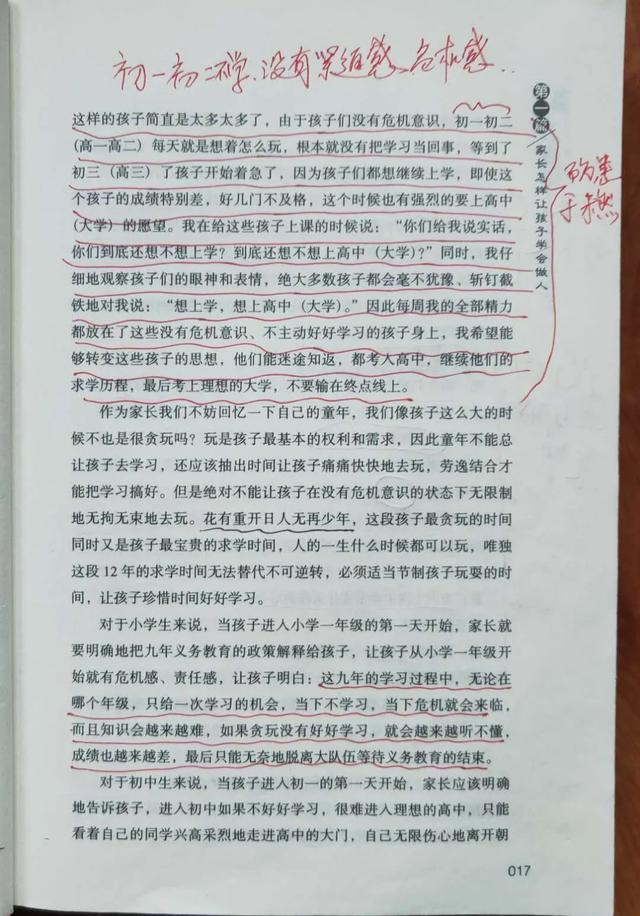 初一初二学.没有紧迫感、危机感..
第一篇 家长怎样让孩子学会做人
这样的孩子简直是太多太多了，由于孩子们没有危机意识，初一初二
（高一高二）每天就是想着怎么玩，根本就没有把学习当回事，等到了
初三（高三）了孩子开始着急了，因为孩子们都想继续上学，即使这
个孩子的成绩特别差，好几门不及格，这个时候也有强烈的要上高中
（大学）的愿望。我在给这些孩子上课的时候说：“你们给我说实话，
你们到底还想不想上学？到底还想不想上高中（大学）？”同时，我仔
细地观察孩子们的眼神和表情，绝大多数孩子都会毫不犹豫、斩钉截
铁地对我说：“想上学，想上高中（大学）。”因此每周我的全部精力
都放在了这些没有危机意识、不主动好好学习的孩子身上，我希望能
够转变这些孩子的思想，他们能迷途知返，都考入高中，继续他们的
求学历程，最后考上理想的大学，不要输在终点线上。
作为家长我们不妨回忆一下自己的童年，我们像孩子这么大的时
候不也是很贪玩吗？玩是孩子最基本的权利和需求，因此童年不能总
让孩子去学习，还应该抽出时间让孩子痛痛快快地去玩，劳逸结合才
能把学习搞好。但是绝对不能让孩子在没有危机意识的状态下无限制
地无拘无束地去玩。花有重开日人无再少年，这段孩子最贪玩的时间
同时又是孩子最宝贵的求学时间，人的一生什么时候都可以玩，唯独
这段 12 年的求学时间无法替代不可逆转，必须适当节制孩子玩耍的时
间，让孩子珍惜时间好好学习。
对于小学生来说，当孩子进入小学一年级的第一天开始，家长就
要明确地把九年义务教育的政策解释给孩子，让孩子从小学一年级开
始就有危机感、责任感，让孩子明白：这九年的学习过程中，无论在
哪个年级，只给一次学习的机会，当下不学习，当下危机就会来临，
而且知识会越来越难，如果贪玩没有好好学习，就会越来越听不懂，
成绩也越来越差，最后只能无奈地脱离大队伍等待义务教育的结束。
对于初中生来说，当孩子进入初一的第一天开始，家长应该明确
地告诉孩子，进入初中如果不好好学习，很难进入理想的高中，只能
看着自己的同学兴高采烈地走进高中的大门，自己无限伤心地离开朝
017